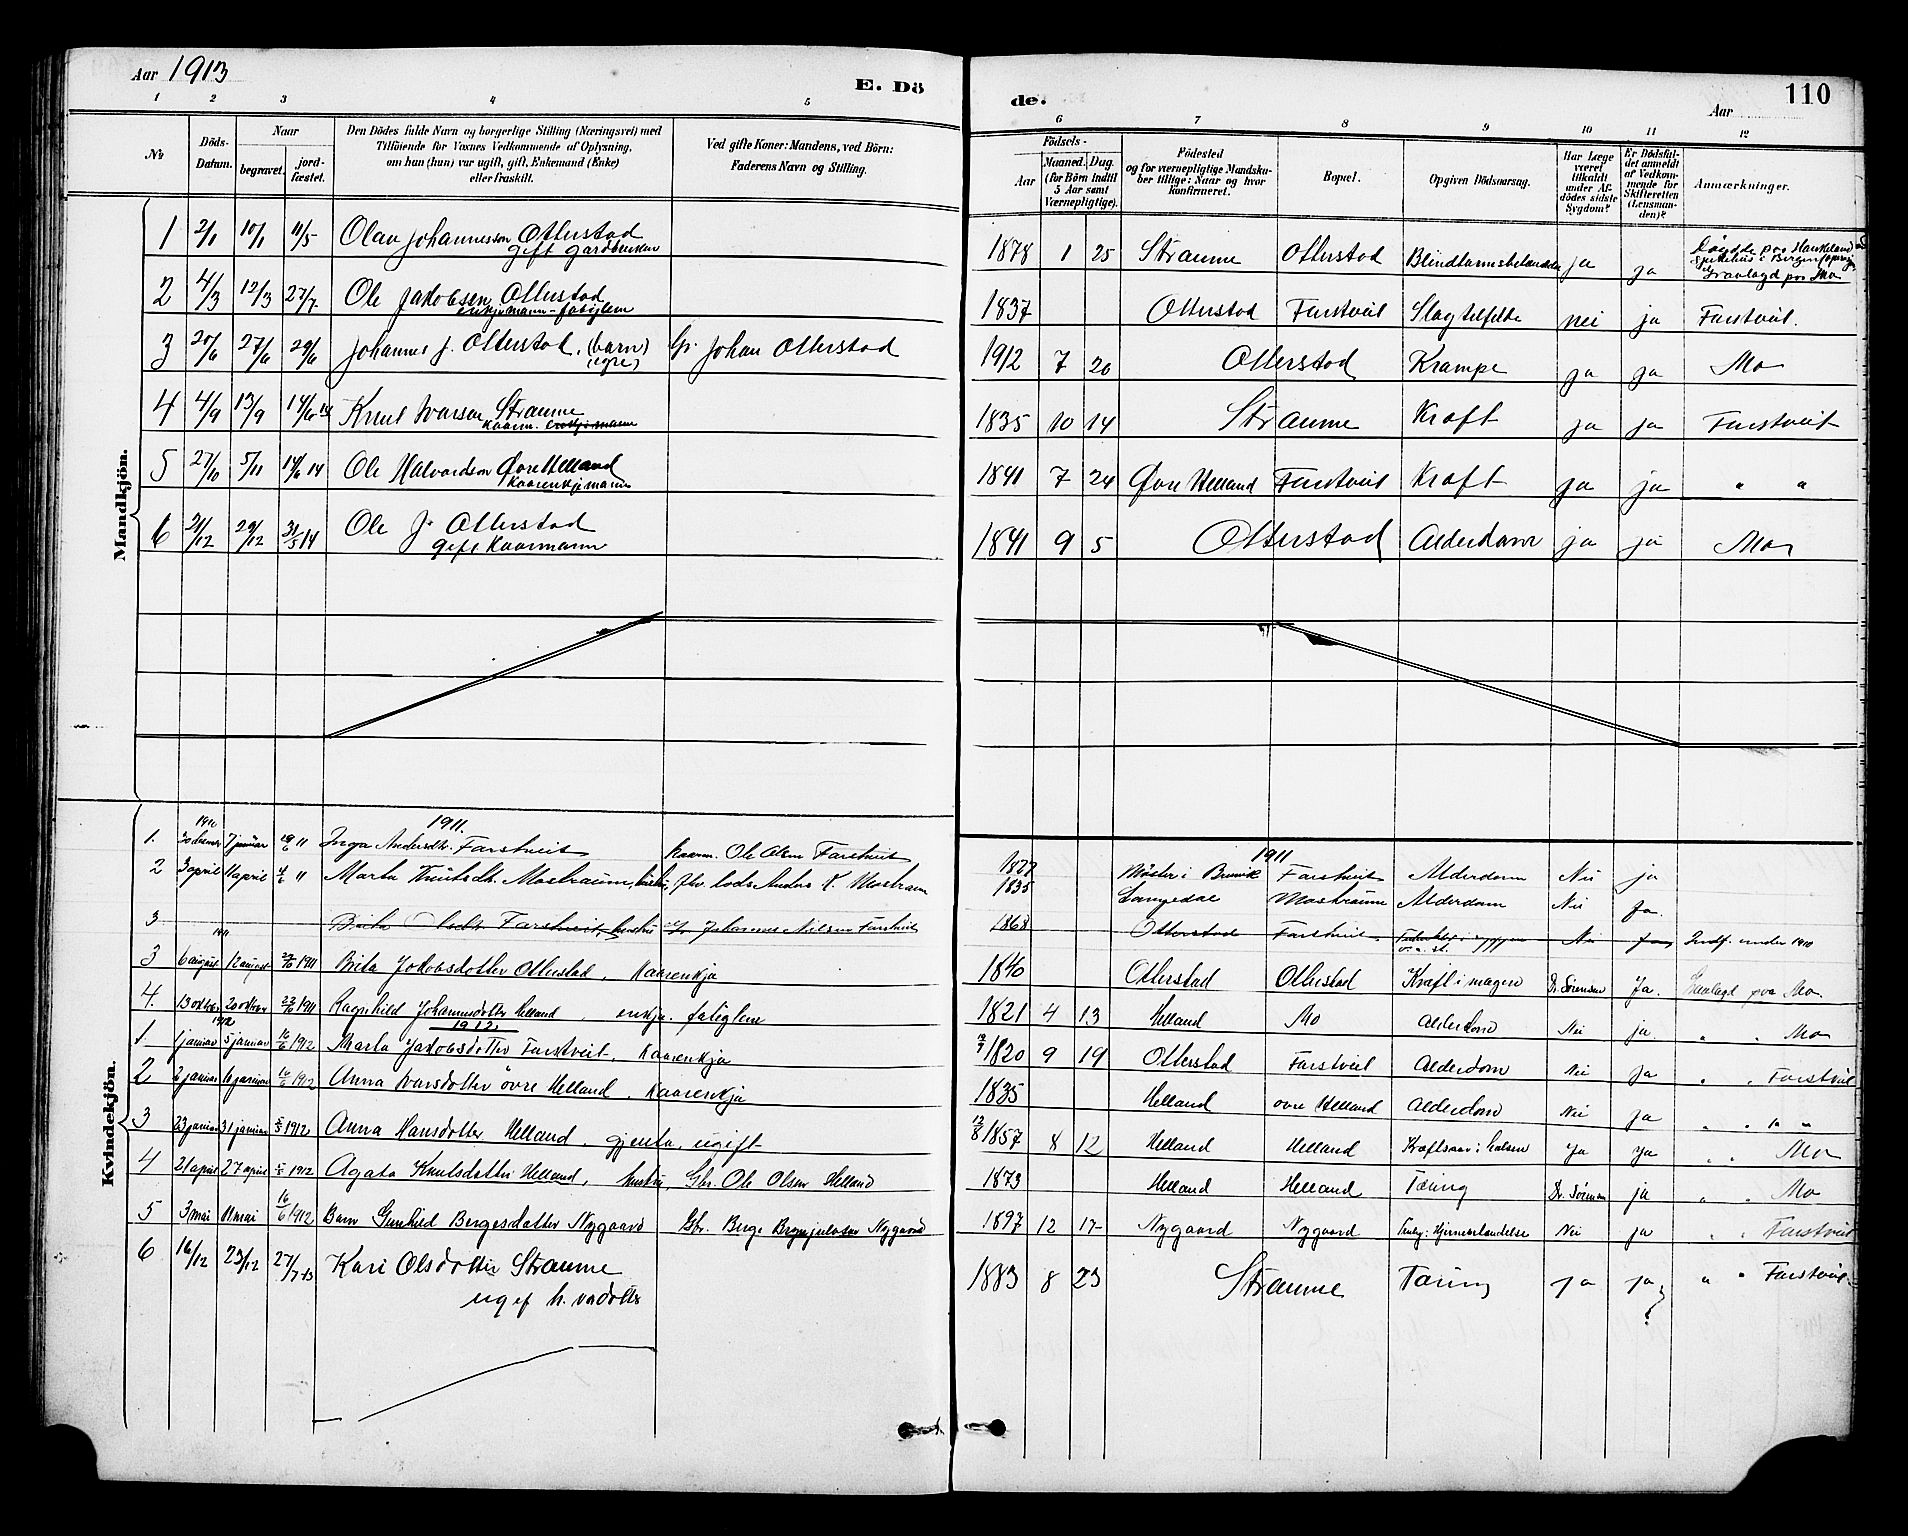 Aar 1913
E. Dö
de.
Aar
110
1 2 3 4 5
6 7 8 9 10 11 12
No
Döds-Datum.
Naar
begravet.
jord-fæstet.
Den Dödes fulde Navn og borgerlige Stilling (Næringsvei) med
Tilföiende for Voxnes Vedkommende af Oplysning,
om han (hun) var ugift, gift, Enkemand (Enke)
eller fraskilt.
Ved gifte Koner: Mandens, ved Börn:
Faderens Navn og Stilling.
Födsels-
Aar
Maaned. Dag.
(for Börn indtil
5 Aar samt
Værnepligtige).
Födested
og for værnepligtige Mandsku-
ber tillige: Naar og hvor
konfirmeret.
Bopæl.
Opgiven Dödsaarsag.
Har Læge
været
tilkaldt
under Af-
dödes sidste
Sygdom?
Er Dödsfal-
det anmeldt
af Vedkom-
mende for
Skifteretten
(Lensman-
den)?
Anmærkninger.
Mandkjön.
1 2/1 10/1 11/5 Olav Johannesson Otterstad 1878 1 25 Straume Otterstad Blindtarmsbetændelse ja ja Døydde paa Haukeland
gift gardbrukar Sjukehus i Bergen
Gravlagd paa Mo
2 4/3 12/3 27/7 Ole Jakobsen Otterstad 1837 Otterstad Farstveit Slagtilfelde nei ja Farstveit.
enkjemann - fatiglem
3 20/6 27/6 29/6 Johannes J. Otterstad, (barn) Gr. Johan Otterstad 1912 7 20 Otterstad Krampe ja ja Mo
4 4/9 13/9 14/6 14 Knut Ivarson Straume 1835 10 14 Straume Kræft ja ja Farstveit
Kaarm. enkjemann
5 27/10 5/11 14/6 14 Ole Halvardson Øvre Helland 1841 7 24 Øvre Helland Farstveit Kræft ja ja " "
Kaarenkjemann
6 21/12 29/12 31/5 14 Ole J. Otterstad 1841 9 5 Otterstad Alderdom ja ja Mo
gift Kaarmann
Kvindekjön.
1910 1911. 1911
1. 30 desember 7 januar 19/6 11 Inga Andersdtr. Farstveit Kaarm. Ole Olsen Farstveit 1827 Møster i Bruvik Farstveit Alderdom Nei ja
2 3 april 11 april 4/6 " Marta Knutsdtr. Mostraum, hustru, Anders K. Mostraum 1835 Langedal Mostraum Alderdom Nei Ja.
3 Brita Olsdtr Farstveit, hustru Gr. Johannes Nilsen Farstveit 1868 Otterstad Farstveit Nei Ja Indf. under 1910
1911
3 6 august 12 august 22/10 1911 Brita Jakobsdotter Otterstad, Kaarenkja 1840 Otterstad Otterstad Kræft i magen Dr. Sørensen Ja. Gravlagd paa Mo.
4. 13 oktober 20 oktober 22/10 1911 Ragnhild Johannesdotter Helland, enkja, fatiglem 1821 4 13 Helland Mo Alderdom Nei ja. " " Mo
1912 1912.
1. 1 januar 5 januar 16/6 1912 Marta Jakobsdotter Farstveit, Kaarenkja 1820 9 19 Otterstad Farstveit Alderdom Nei ja " " Farstveit
2 2 januar 10 januar 16/6 1912 Anna Ivarsdotter øvre Helland, Kaarenkja 1835 Helland øvre Helland Alderdom Nei ja " " "
3 23 januar 31 januar 5/5 1912 Anna Hansdotter Helland, gjenta, ugift 1857 8 12 Helland Helland Kræftsaar i halsen Ja Ja " " Mo
4 21 april 27 april 5/5 1912 Agata Knutsdotter Helland, hustru, Gbr. Ole Olsen Helland 1873 Helland Helland Tæring Dr. Sørensen ja " " Mo
5 3 mai 11 mai 16/6 1912 Barn Gunhild Bergesdotter Nygaard Gbr. Berge Brynjulvson Nygaard 1897 12 17 Nygaard Nygaard Hjernebetændelse Nei ja " " Farstveit
6 16/12 23/12 27/7 13 Kari Olsdotter Straume 1883 8 23 Straume Tæring Ja Ja " " Farstveit
ugif
?